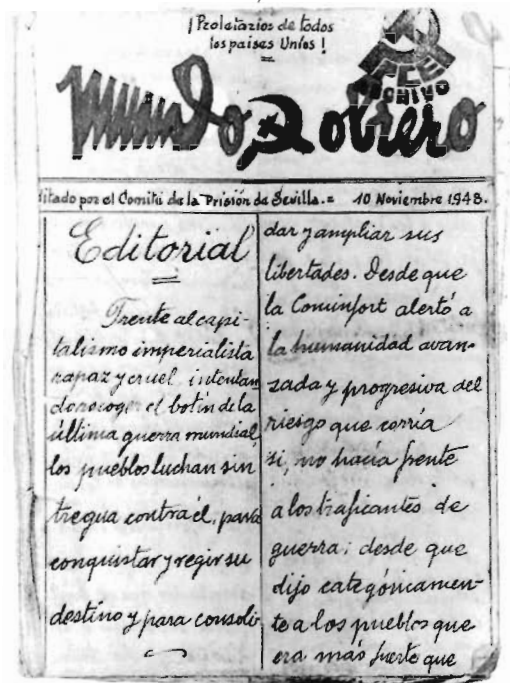 ¡Proletarios de todos
los países Uníos!
PCE
ARCHIVO
Mundo obrero
itado por el Comité de la Prisión de Sevilla.= 10 Noviembre 1948.
Editorial
Frente al capi-
talismo imperialista
rapaz y cruel intentan
do recoger el botín de la
última guerra mundial,
los pueblos luchan sin
tregua contra él, para
conquistar y regir su
destino y para consoli-
dar y ampliar sus
libertades. Desde que
la Cominfort alertó a
la humanidad avan-
zada y progresiva del
riesgo que corría
si, no hacía frente
a los traficantes de
guerra; desde que
dijo categóricamen-
te a los pueblos que
era más fuerte que